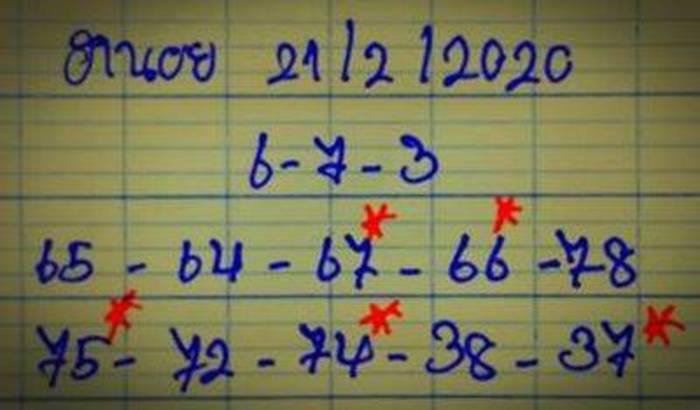 ฮานอย 21/2/2020
6-7-3
65 - 64 - 67 - 66 - 78
75 - 72 - 74 - 38 - 37